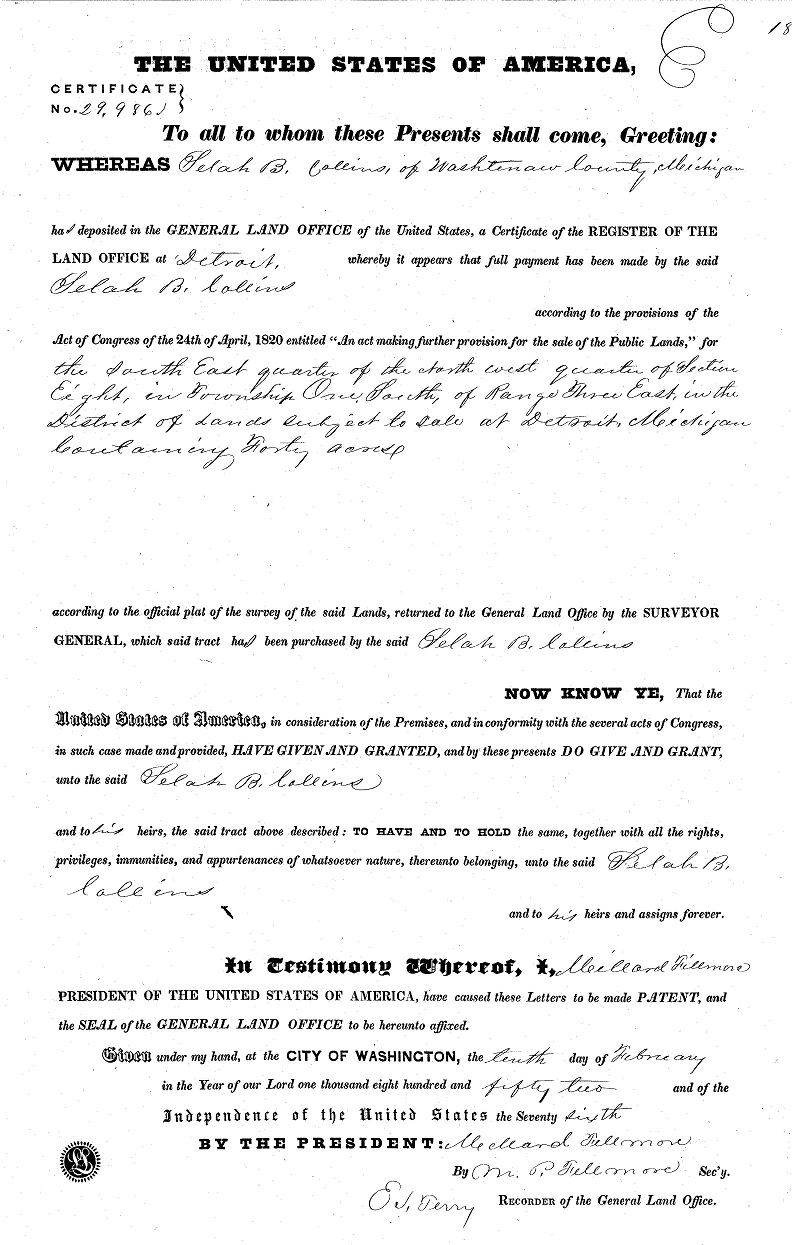 18
THE UNITED STATES OF AMERICA,
CERTIFICATE
No. 29,986
To all to whom these Presents shall come, Greeting:
WHEREAS Selah B. Collins, of Washtenaw County, Michigan
has deposited in the GENERAL LAND OFFICE of the United States, a Certificate of the REGISTER OF THE
LAND OFFICE at Detroit, whereby it appears that full payment has been made by the said
Selah B. Collins
according to the provisions of the
Act of Congress of the 24th of April, 1820 entitled “An act making further provision for the sale of the Public Lands,” for
the South East quarter of the North west quarter of Section
Eight, in Township One, South, of Range Three East, in the
District of Lands subject to sale at Detroit, Michigan
Containing Forty acres
according to the official plat of the survey of the said Lands, returned to the General Land Office by the SURVEYOR
GENERAL, which said tract has been purchased by the said Selah B. Collins
NOW KNOW YE, That the
United States of America, in consideration of the Premises, and in conformity with the several acts of Congress,
in such case made and provided, HAVE GIVEN AND GRANTED, and by these presents DO GIVE AND GRANT,
unto the said Selah B. Collins
and to his heirs, the said tract above described: TO HAVE AND TO HOLD the same, together with all the rights,
privileges, immunities, and appurtenances of whatsoever nature, thereunto belonging, unto the said Selah B.
Collins
and to his heirs and assigns forever.
In Testimony Whereof, I, Millard Fillmore
PRESIDENT OF THE UNITED STATES OF AMERICA, have caused these Letters to be made PATENT, and
the SEAL of the GENERAL LAND OFFICE to be hereunto affixed.
Given under my hand, at the CITY OF WASHINGTON, the tenth day of February
in the Year of our Lord one thousand eight hundred and fifty two and of the
Independence of the United States the Seventy sixth
BY THE PRESIDENT: Millard Fillmore
By M. P. Fillmore Sec'y.
E. S. Terry RECORDER of the General Land Office.